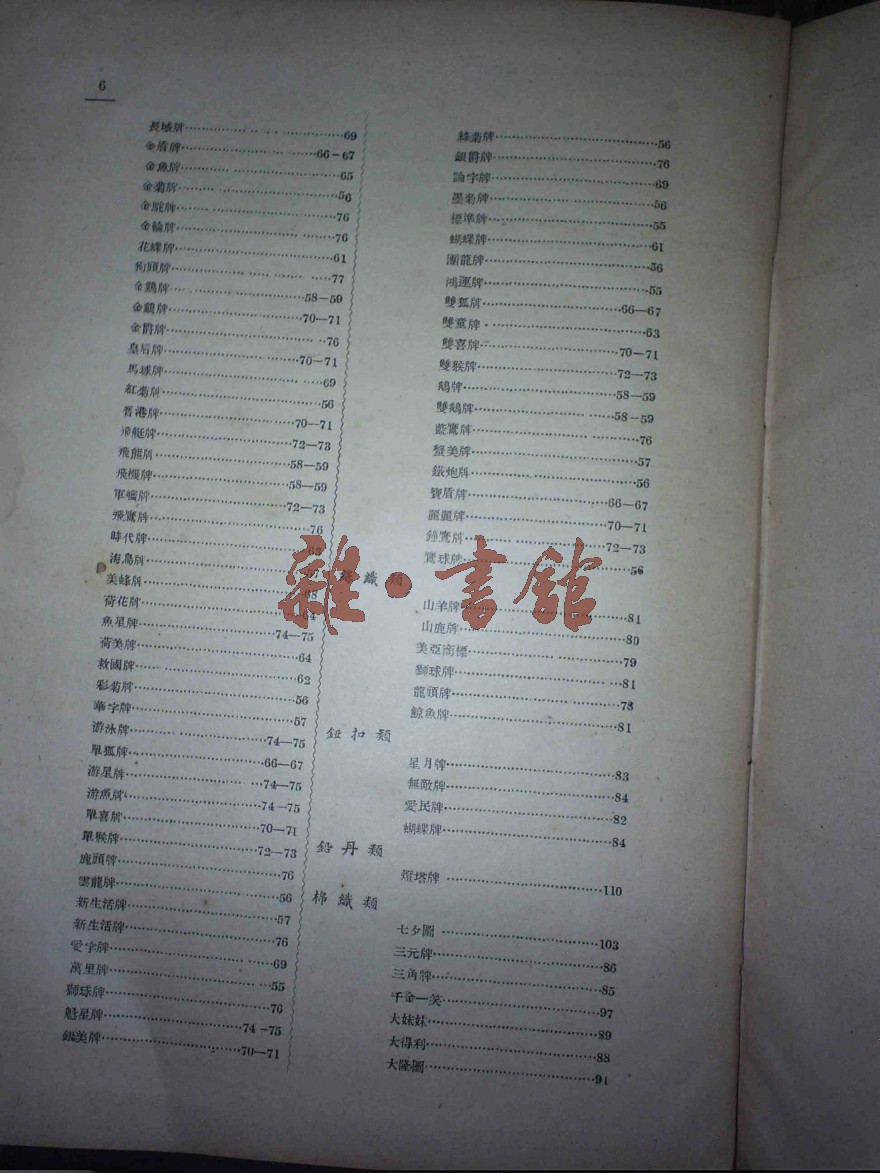 6
長城牌 69
金盾牌 66-67
金魚牌 65
金菊牌 56
金駝牌 76
金輪牌 76
花蝶牌 61
狗頭牌 77
金鷄牌 58-59
金顧牌 70-71
金爵牌 76
皇后牌 70-71
馬球牌 69
紅菊牌 56
香港牌 70-71
飛艇牌 72-73
飛熊牌 58-59
飛機牌 58-59
軍艦牌 72-73
飛鷹牌 76
時代牌 63
海島牌 57
美蜂牌 68
荷花牌 64
魚星牌 74-75
荷美牌 64
救國牌 62
彩菊牌 56
華字牌 57
游泳牌 74-75
單狐牌 66-67
游星牌 74-75
游魚牌 74-75
單喜牌 70-71
單猴牌 72-73
鹿頭牌 76
雲龍牌 56
新生活牌 57
新生活牌 76
愛字牌 69
萬里牌 55
獅球牌 76
魁星牌 74-75
銀美牌 70-71
綠菊牌 56
銀爵牌 76
論字牌 69
墨菊牌 56
標準牌 55
蝴蝶牌 61
團龍牌 56
鴻運牌 55
雙狐牌 66-67
雙童牌 63
雙喜牌 70-71
雙猴牌 72-73
鵝牌 58-59
雙鵝牌 58-59
藍鷹牌 76
蟹美牌 57
鐵炮牌 56
寶盾牌 66-67
麗麗牌 70-71
鐘鷹牌 72-73
鷹球牌 56
織類
山羊牌 81
山鹿牌 80
美亞商標 79
獅球牌 81
龍頭牌 78
鯨魚牌 81
鈕扣類
星月牌 83
無敵牌 84
愛民牌 82
蝴蝶牌 84
鉛丹類
燈塔牌 110
棉織類
七夕圖 103
三元牌 86
三角牌 85
千金一笑 97
大妹妹 89
大得利 88
大隆圖 91
雜·書館